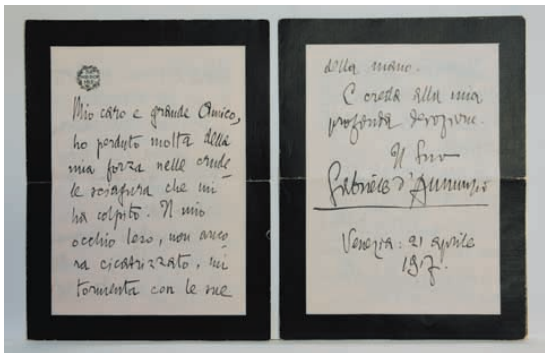 Mio caro e grande Amico,
ho perduto molta della
mia forza nelle crude
le sciagura che mi
ha colpito. Il mio
occhio leso, non anco
ra cicatrizzato, mi
tormenta con le sue
della mano.
E creda alla mia
profonda devozione.
Il suo
Gabriele d'Annunzio
Venezia: 21 aprile
1917.